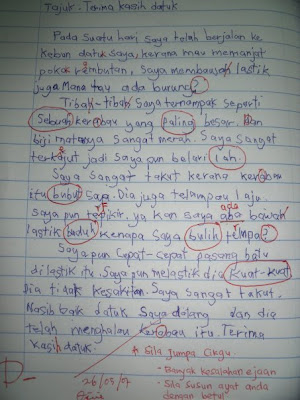 Tajuk: Terima kasih datuk
Pada suatu hari saya telah berjalan ke
kebun datuk saya, kerana mau memanjat
pokok rambutan, saya membawah lastik
juga mana tau ada burung?
Tibah-tibah saya ternampak seperti
sebuah kerabau yang paling besar dan
biji matanya sangat merah. Saya sangat
terkajut jadi saya pun balari lah.
Saya sangat takut kerana kerabau
itu buruh saya. Dia juga telampau laju.
saya pun tepikir, ya kan saya aba bawah
lastik buduh kenapa saya bulih telmpa?
Saya pun cepat-cepat pasang batu
di lastik itu. Saya pun melastik dia kuat-kuat,
dia tidak kesakitan. Saya sangat takut.
Nasih baik datuk saya datang dan dia
telah menghalau kerabau itu. Terima
kasih datuk.
D-
26/05/07
* Sila jumpa cikgu.
- Banyak kesalahan ejaan
- Sila susun ayat anda
dengan betul